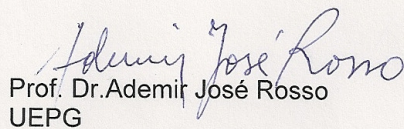 Ademir José Rosso
Prof. Dr.Ademir José Rosso
UEPG